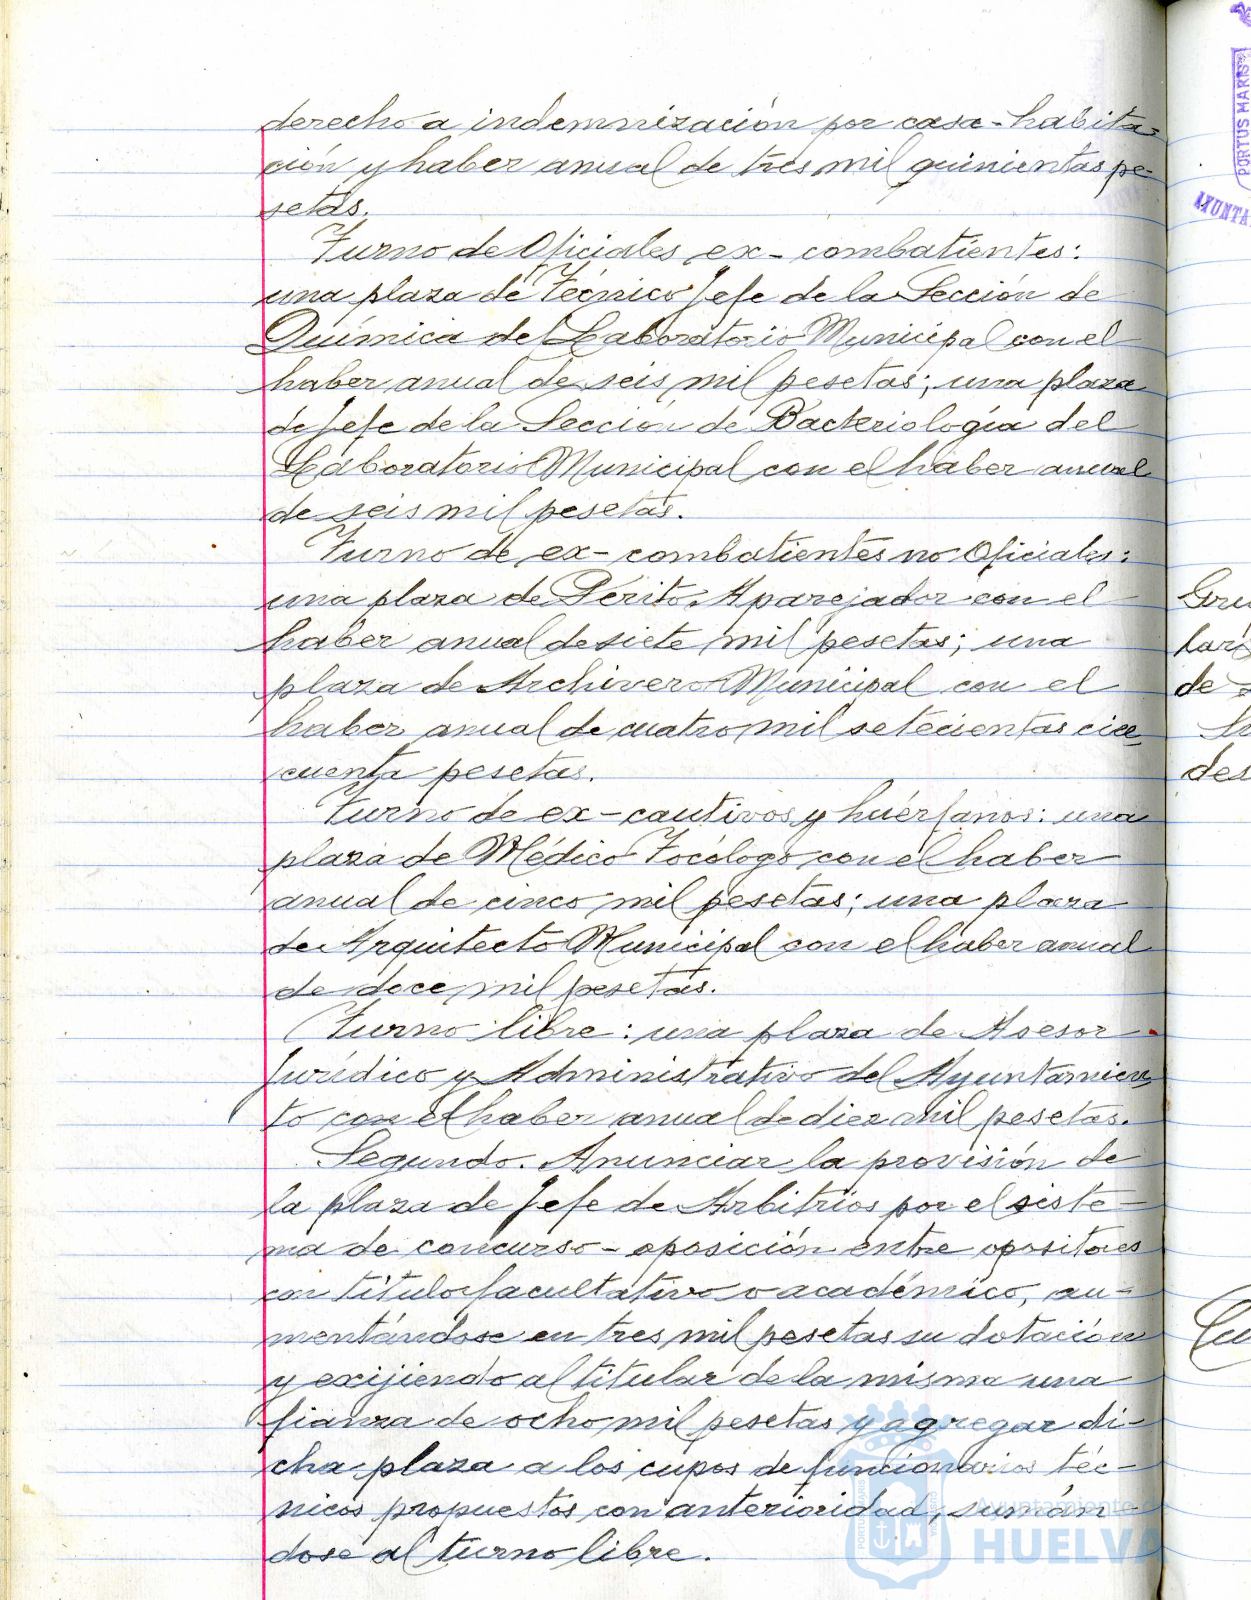 derecho a indemnización por casa-habita-
ción y haber anual de tres mil quinientas pe-
setas.
Turno de Oficiales ex-combatientes:
una plaza de Técnico Jefe de la Sección de
Química del Laboratorio Municipal con el
haber anual de seis mil pesetas; una plaza
de Jefe de la Sección de Bacteriología del
Laboratorio Municipal con el haber anual
de seis mil pesetas.
Turno de ex-combatientes no Oficiales:
una plaza de Périto Aparejador con el
haber anual de siete mil pesetas; una
plaza de Archivero Municipal con el
haber anual de cuatro mil setecientas cin-
cuenta pesetas.
Turno de ex-cautivos y huérfanos: una
plaza de Médico Tocólogo con el haber
anual de cinco mil pesetas; una plaza
de Arquitecto Municipal con el haber anual
de doce mil pesetas.
Turno libre: una plaza de Asesor
Jurídico y Administrativo del Ayuntamien-
to con el haber anual de diez mil pesetas.
Segundo. Anunciar la provisión de
la plaza de Jefe de Arbitrios por el siste-
ma de concurso-oposición entre opositores
con título facultativo o académico, au-
mentándose en tres mil pesetas su dotación
y exijiendo al titular de la misma una
fianza de ocho mil pesetas y agregar di-
cha plaza a los cupos de funcionarios téc-
nicos propuestos con anterioridad, sumán-
dose al turno libre.
PORTUS MARIS
AYUNTA
de
des
Ayuntamiento
HUELVA